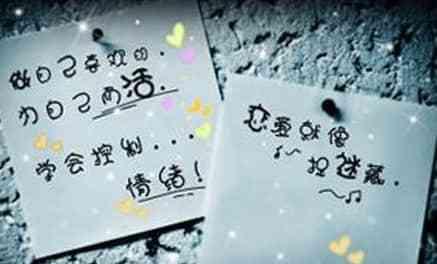 做自己喜欢的.
为自己而活.
学会控制...
情绪!
恋爱就像
捉迷藏.